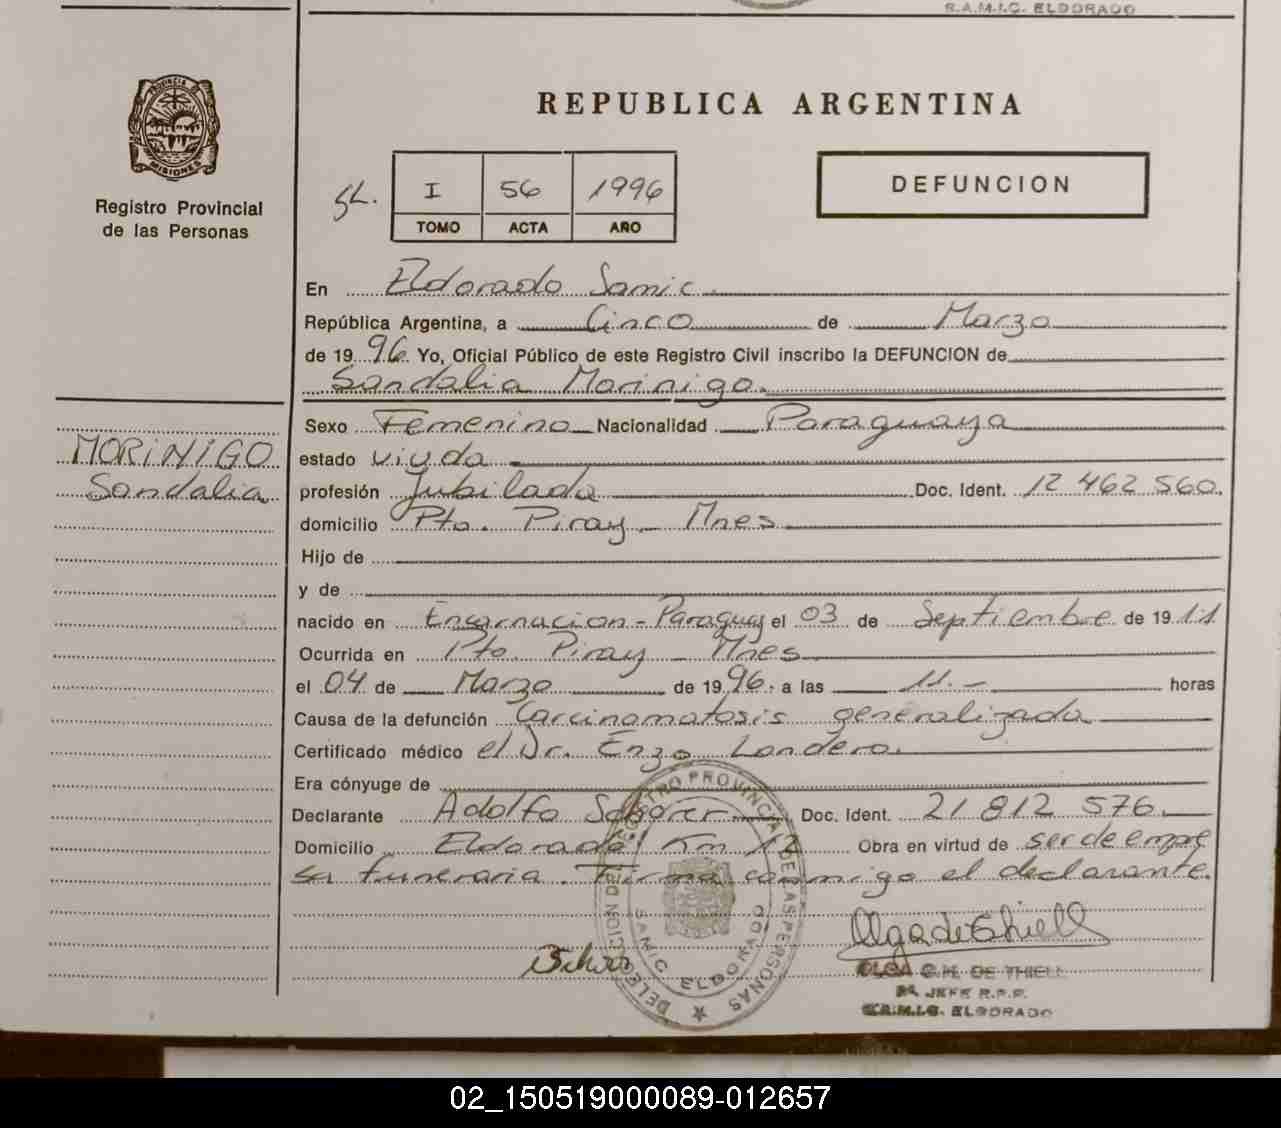 S.A.M.I.C. ELDORADO
PROVINCIA DE
MISIONES
Registro Provincial
de las Personas
REPUBLICA ARGENTINA
I 56 1996
TOMO ACTA AÑO
DEFUNCION
En Eldorado Samic.
República Argentina, a Cinco de Marzo
de 19 96. Yo, Oficial Público de este Registro Civil inscribo la DEFUNCION de
Sandalia Morinigo.
MORINIGO
Sandalia
Sexo Femenino Nacionalidad Paraguaya
estado viuda
profesión Jubilada Doc. Ident. 12 462 560.
domicilio Pto. Piray - Mnes
Hijo de
y de
nacido en Encarnacion - Paraguay el 03 de Septiembre de 19 11
Ocurrida en Pto. Piray - Mnes
el 04 de Marzo de 19 96. a las 11.- horas
Causa de la defunción Carcinomatosis generalizada
Certificado médico el Dr. Enzo Landero.
Era cónyuge de
Declarante Adolfo Scherer Doc. Ident. 21 812 576.
Domicilio Eldorado Km 12 Obra en virtud de ser de empre
sa funeraria. Firma conmigo el declarante.
REGISTRO PROVINCIAL DE LAS PERSONAS
DELEGACION DE
SAMIC ELDORADO
Olga de Thiell
OLGA G.H. DE THIELL
JEFE R.P.P.
S.A.M.I.C. ELDORADO
02_150519000089-012657